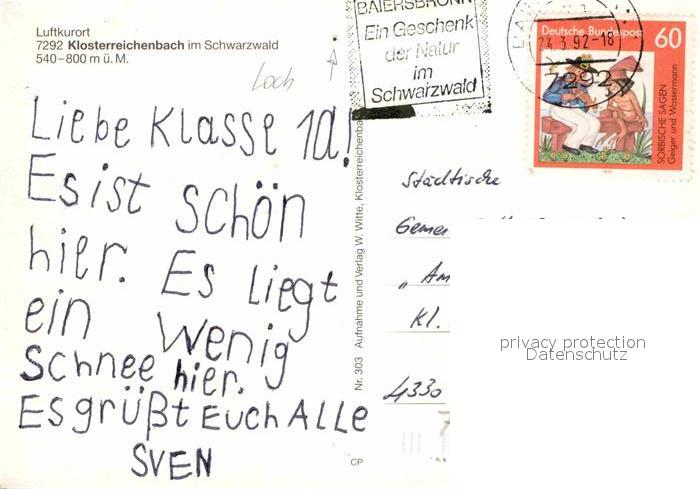 Luftkurort
7292 Klosterreichenbach im Schwarzwald
540–800 m ü. M.
Loch
Liebe Klasse 1a!
Es ist schön
hier. Es liegt
ein wenig
Schnee hier.
Es grüßt Euch Alle
SVEN
Nr. 303 Aufnahme und Verlag W. Witte, Klosterreichenba
CP
BAIERSBRONN
Ein Geschenk
der Natur
im
Schwarzwald
24.3.92-18
7292
Deutsche Bundespost
60
SORBISCHE SAGEN
Geiger und Wassermann
1991
Städtische
Gemei
„Am
Kl.
4330
privacy protection
Datenschutz